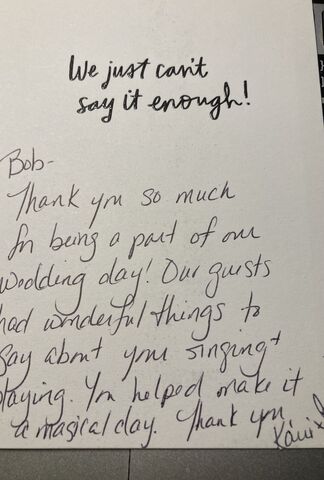 We just can't
say it enough!
Bob-
Thank you so much
for being a part of our
wedding day! Our guests
had wonderful things to
say about your singing +
playing. You helped make it
a magical day. Thank you